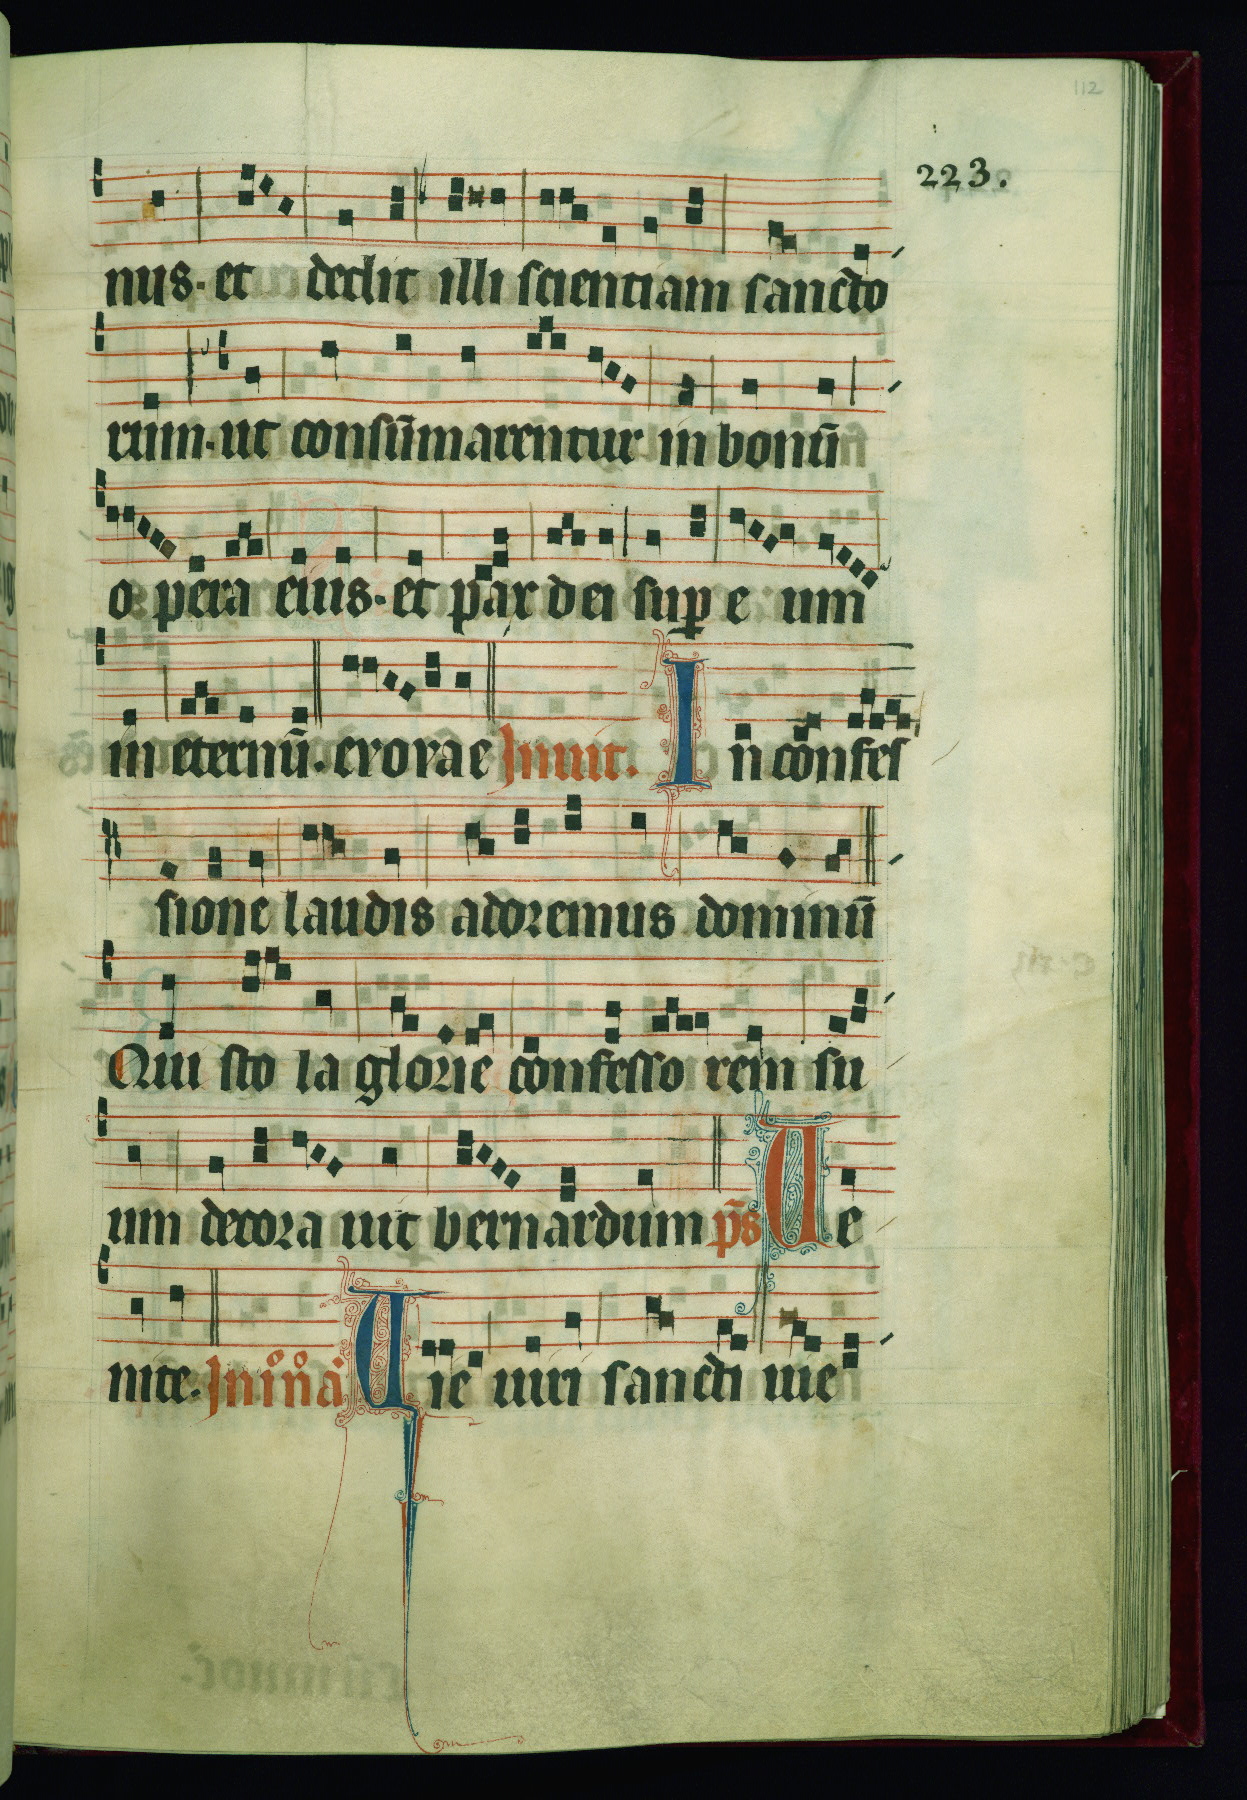 112
223.
nus. et dedit illi scientiam sancto
rum. ut consūmarentur in bonū
opera eius. et pax dei sup e um
in eternū. evovae Invit. In confes
sione laudis adoremus dominū
Qui sto la glorie confesso rem su
um decora uit bernardum ps̄ Ve
nite. In iº nº añ Vie uiri sancti uie